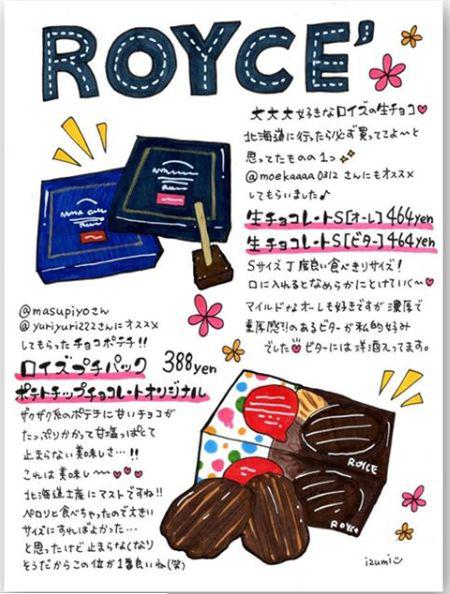 ROYCE'
大大大好きなロイズの生チョコ
北海道に行ったら必ず買ってこよ〜と
思ってたものの1つ
@moekaaaa0312 さんにもオススメ
してもらいました♪
生チョコレートS[オーレ] 464yen
生チョコレートS[ビター] 464yen
Sサイズ丁度良い食べきりサイズ！
口に入れるとなめらかにとけていく〜
マイルドなオーレも好きですが濃厚で
重厚感のあるビターが私的好み
でした ビターには洋酒入ってます。
@masupiyoさん
@yuriyuri222さんにオススメ
してもらったチョコポテチ!!
ロイズプチパック 388yen
ポテトチップチョコレートオリジナル
ザクザク系のポテチに甘いチョコが
たっぷりかかって甘塩っぱくて
止まらない美味しさ…!!
これは美味し〜
北海道土産にマストですね!!
ペロリと食べちゃったので大きい
サイズにすればよかった…
と思ったけど止まらなくなり
そうだからこの位が1番良いね(笑)
ROYCE
ROYCE
izumi